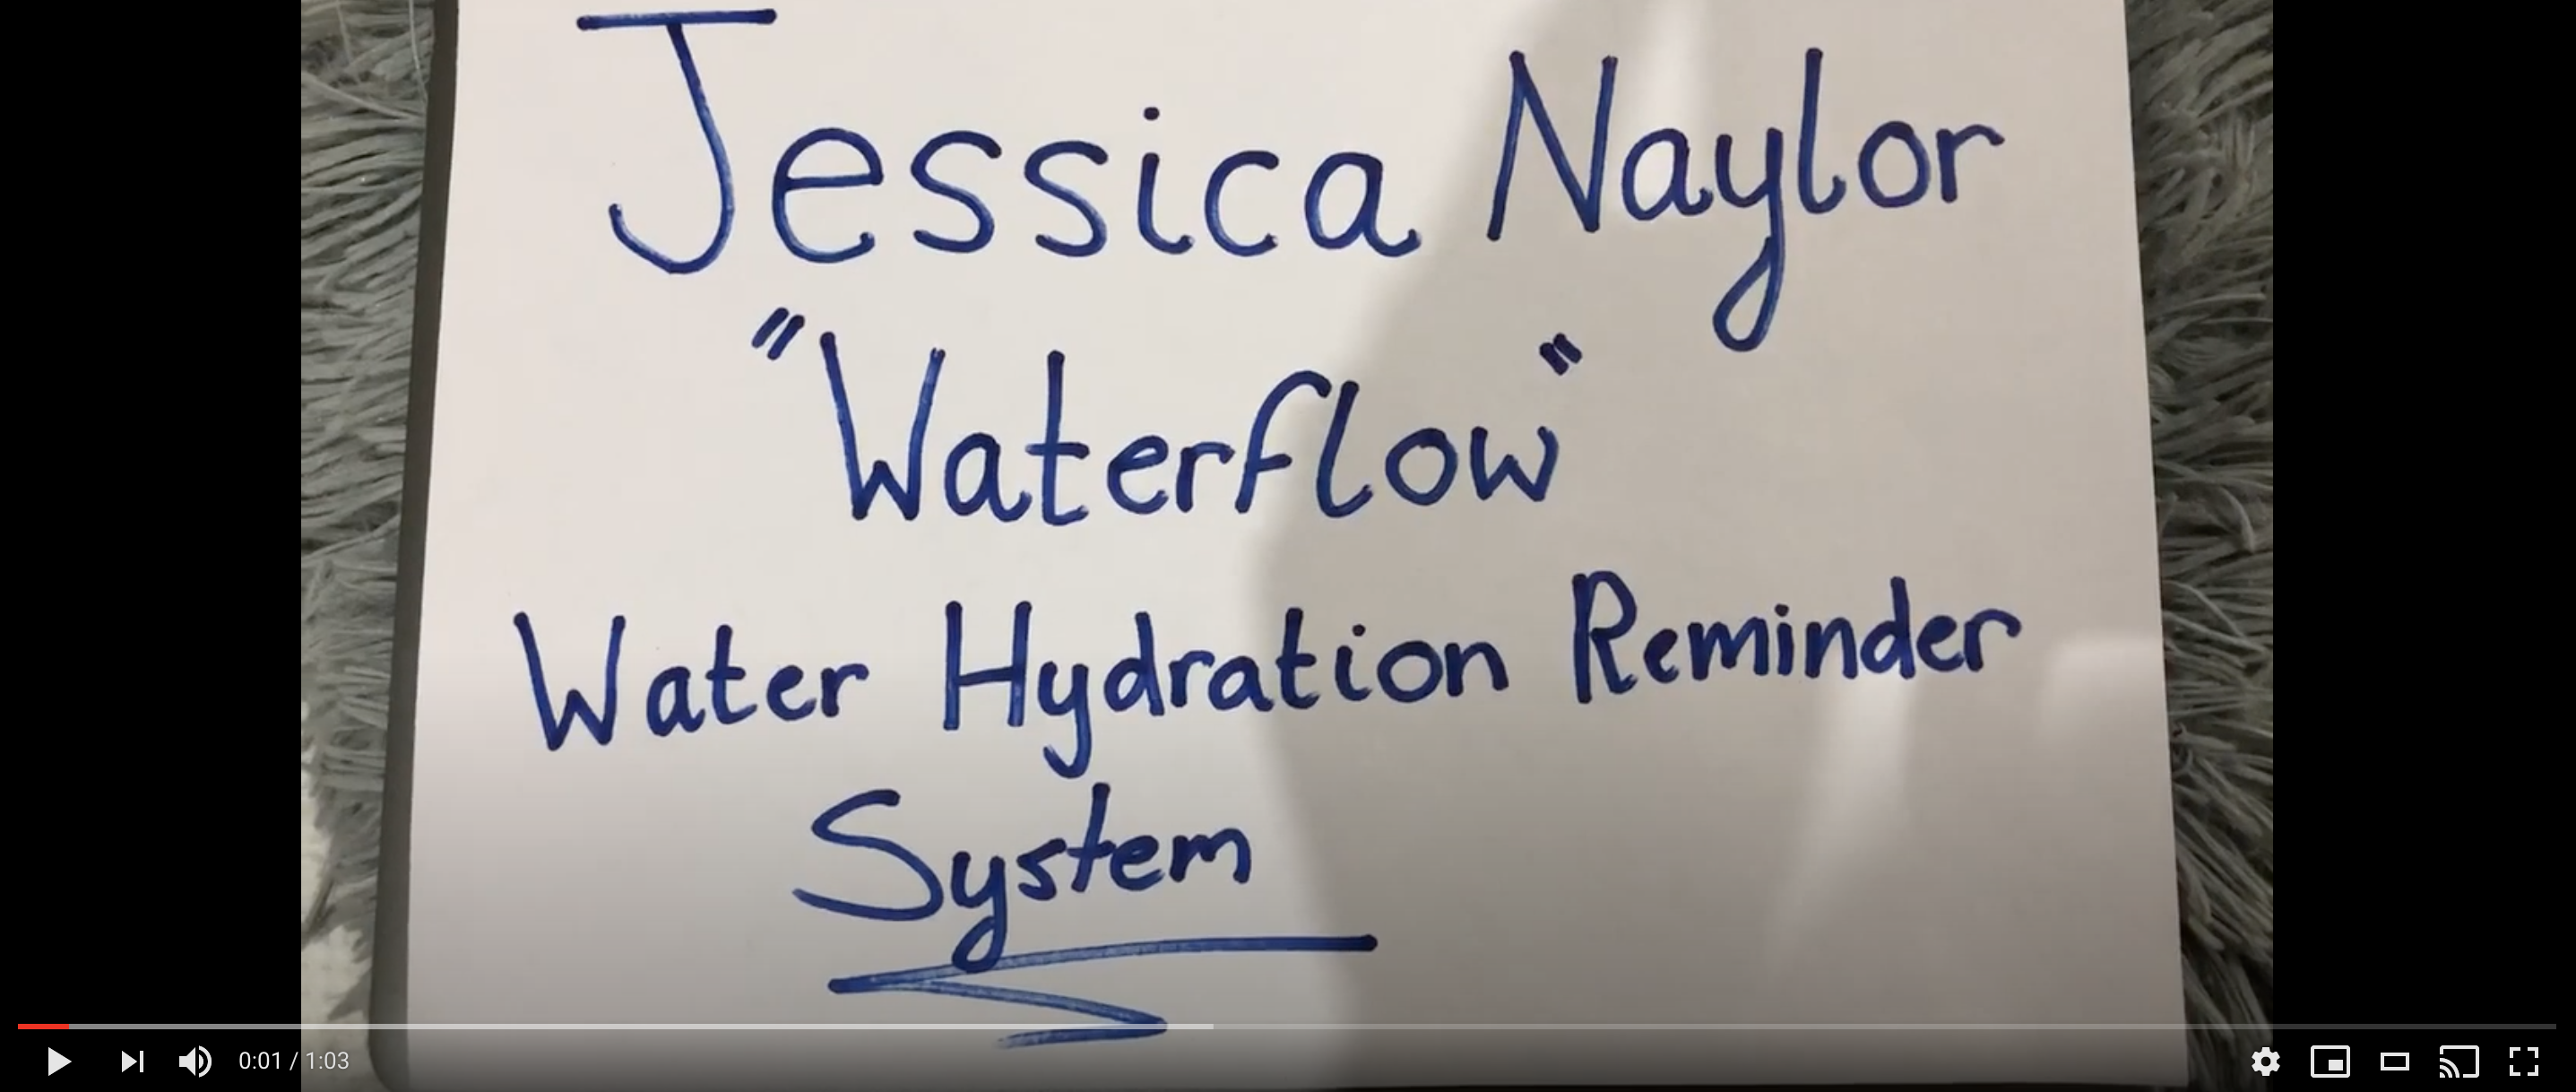 Jessica Naylor
"Waterflow"
Water Hydration Reminder
System
0:01 / 1:03